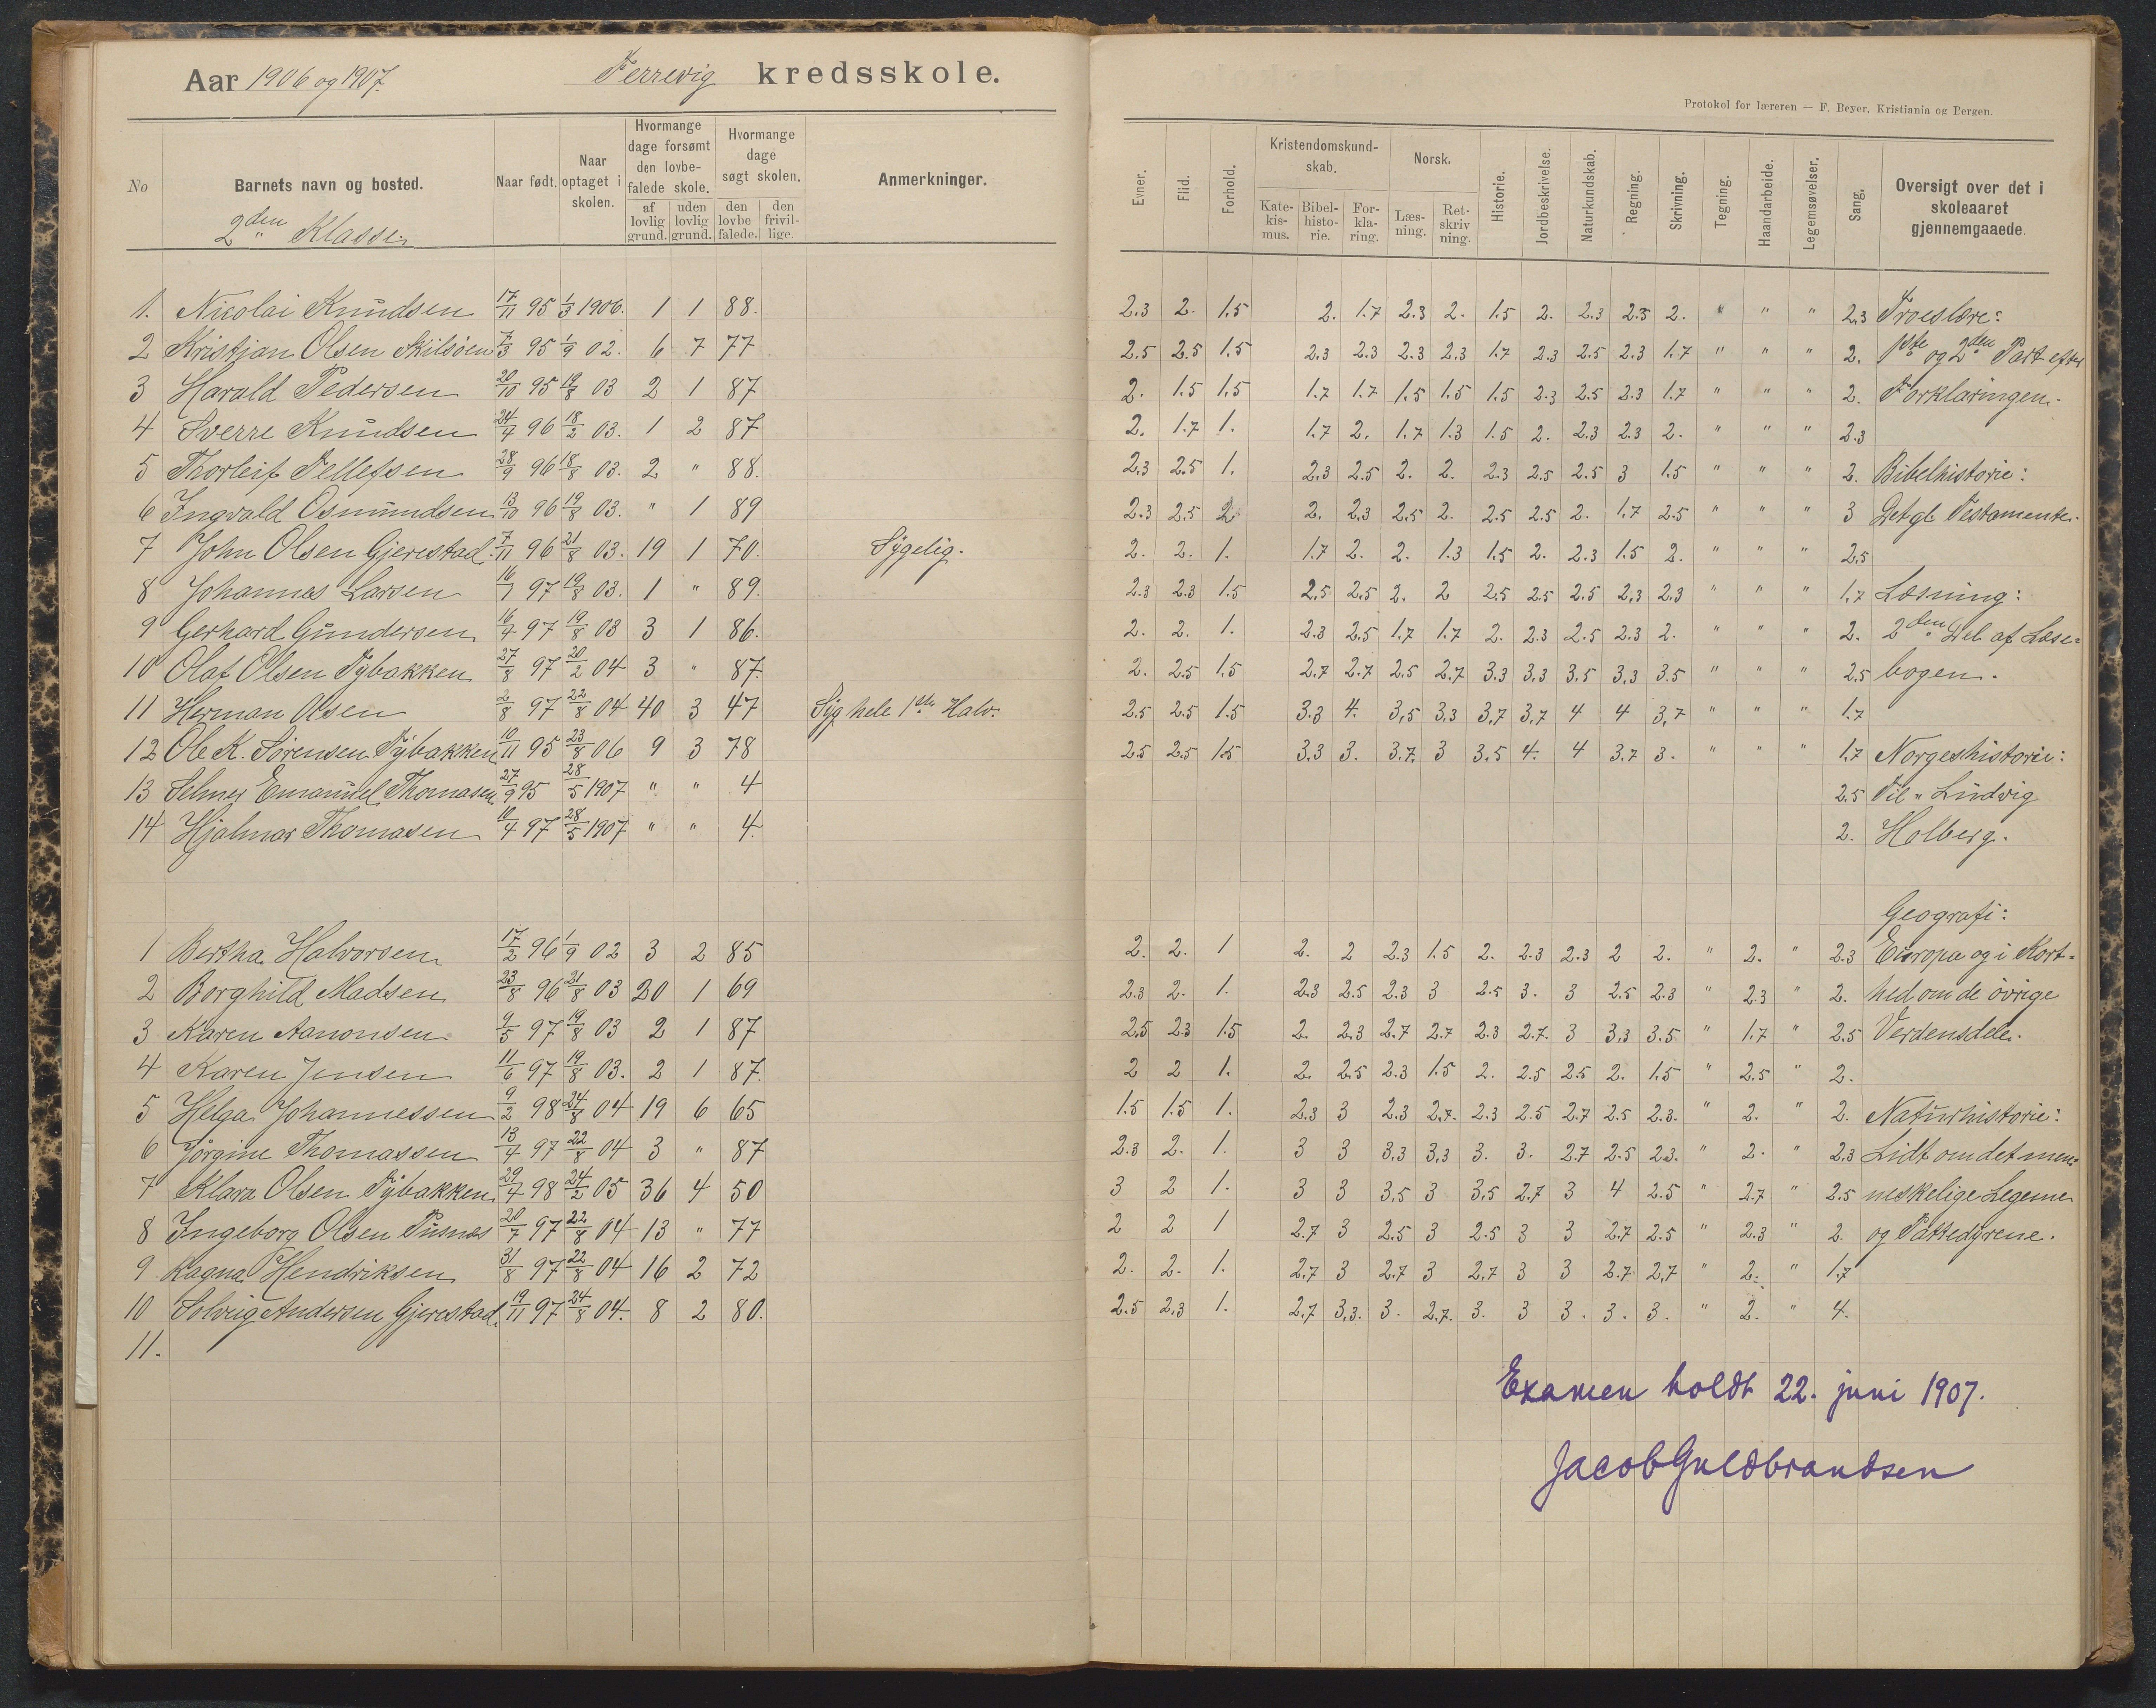 Aar 1906 og 1907. Ferrevig kredsskole.
No
Barnets navn og bosted.
2den Klasse.
Naar født.
Naar optaget i skolen.
Hvormange dage forsømt den lovbefalede skole.
af lovlig grund.
uden lovlig grund.
Hvormange dage søgt skolen.
den lovbefalede.
den frivillige.
Anmerkninger.
1. Nicolai Knudsen 17/11 95 1/3 1906. 1 1 88.
2 Kristian Olsen Skilsöen 7/3 95 1/9 02. 6 7 77
3 Harald Pedersen 20/10 95 19/8 03 2 1 87
4 Sverre Knudsen 24/4 96 18/2 03. 1 2 87
5 Thorleif Tellefsen 28/9 96 18/8 03. 2 " 88.
6 Ingvald Osmundsen 13/10 96 19/8 03. " 1 89
7 John Olsen Gjerestad. 7/11 96 21/8 03. 19 1 70. Sygelig.
8 Johannes Larsen 16/7 97 19/8 03. 1 " 89.
9 Gerhard Gundersen 16/4 97 19/8 03 3 1 86.
10 Olaf Olsen Tybakken 27/8 97 20/2 04 3 " 87.
11 Herman Olsen 2/8 97 22/8 04 40 3 47 Syg hele 1ste Halv.
12 Ole K. Sörensen Tybakken 10/11 95 23/8 06 9 3 78
13 Selmer Emanuel Thomasen 27/9 95 28/5 1907 " " 4
14 Hjalmar Thomasen 10/4 97 28/5 1907 " " 4.
1 Bertha Halvorsen 17/2 96 1/9 02 3 2 85
2 Borghild Madsen 23/8 96 21/8 03 20 1 69
3 Karen Aanonsen 9/5 97 19/8 03 2 1 87
4 Karen Jensen 11/6 97 19/8 03. 2 1 87.
5 Helga Johannessen 9/2 98 24/8 04 19 6 65
6 Jörgine Thomassen 13/4 97 22/8 04 3 " 87
7 Klara Olsen Tybakken 29/4 98 24/2 05 36 4 50
8 Ingeborg Olsen Pusnes 20/7 97 22/8 04 13 " 77
9 Ragna Hendriksen 31/8 97 22/8 04 16 2 72
10 Solveig Andersen Gjerestad. 19/11 97 24/8 04. 8 2 80.
11.
Protokol for læreren — F. Beyer, Kristiania og Bergen.
Evner.
Flid.
Forhold.
Kristendomskundskab.
Katekismus.
Bibelhistorie.
Forklaring.
Norsk.
Læsning.
Retskrivning.
Historie.
Jordbeskrivelse.
Naturkundskab.
Regning.
Skrivning.
Tegning.
Haandarbeide.
Legemsøvelser.
Sang.
Oversigt over det i skoleaaret gjennemgaaede.
2.3 2. 1.5 2. 1.7 2.3 2. 1.5 2. 2.3 2.3 2. " " " 2.3 Troeslære:
2.5 2.5 1.5 2.3 2.3 2.3 2.3 1.7 2.3 2.5 2.3 1.7 " " " 2. 1ste og 2den Part efter
2. 1.5 1.5 1.7 1.7 1.5 1.5 1.5 2.3 2.5 2.3 1.7 " " " 2. Forklaringen.
2. 1.7 1. 1.7 2. 1.7 1.3 1.5 2. 2.3 2.3 2. " " " 2.3
2.3 2.5 1. 2.3 2.5 2. 2. 2.3 2.5 2.5 3 1.5 " " " 2. Bibelhistorie:
2.3 2.5 2 2. 2.3 2.5 2. 2.5 2.5 2. 1.7 2.5 " " " 3 Det gl. Testamente.
2. 2. 1. 1.7 2. 2. 1.3 1.5 2. 2.3 1.5 2. " " " 2.5
2.3 2.3 1.5 2.5 2.5 2. 2 2.5 2.5 2.5 2.3 2.3 " " " 1.7 Læsning:
2. 2. 1. 2.3 2.5 1.7 1.7 2. 2.3 2.5 2.3 2. " " " 2. 2den Del af Læse=
2. 2.5 1.5 2.7 2.7 2.5 2.7 3.3 3.3 3.5 3.3 3.5 " " " 2.5 bogen.
2.5 2.5 1.5 3.3 4. 3.5 3.3 3.7 3.7 4 4 3.7 " " " 1.7
2.5 2.5 1.5 3.3 3. 3.7. 3 3.5 4. 4 3.7 3. " " " 1.7 Norgeshistorie:
2.5 Til " Ludvig
2. Holberg.
Geografi:
2. 2. 1 2. 2 2.3 1.5 2. 2.3 2.3 2 2. " 2. " 2.3 Europa og i Kort=
2.3 2. 1. 2.3 2.5 2.3 3 2.5 3. 3 2.5 2.3 " 2.3 " 2. hed om de övrige
2.5 2.3 1.5 2. 2.3 2.7 2.7 2.3 2.7. 3 3.3 3.5 " 1.7 " 2.5 Verdensdele.
2 2 1. 2. 2.5 2.3 1.5 2. 2.5 2.5 2. 1.5 " 2.5 " 2.
1.5 1.5 1. 2.3 3 2.3 2.7. 2.3 2.5 2.7 2.5 2.3. " 2. " 2. Naturhistorie:
2.3 2. 1. 3 3 3.3 3.3 3. 3. 2.7 2.5 2.3. " 2. " 2.3 Lidt om det men=
3 2 1. 3 3 3.5 3 3.5 2.7 3 4 2.5 " 2.7 " 2.5 neskelige Legeme
2 2 1 2.7 3 2.5 3 2.5 3 3 2.7 2.5 " 2.3 " 2. og Pattedyrene.
2. 2. 1. 2.7 3 2.7 3 2.7 3 3 2.7 2.7 " 2. " 1.7
2.5 2.3 1. 2.7 3.3. 3. 2.7. 3. 3 3. 3. 3. " 2. " 4.
Examen holdt 22. juni 1907.
Jacob Guldbrandsen